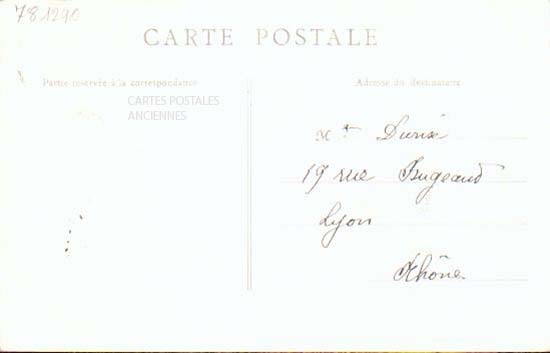 781290
CARTE POSTALE
Partie réservée à la correspondance
Adresse du destinataire
CARTES POSTALES
ANCIENNES
19 rue Bugeaud
Lyon
Rhône